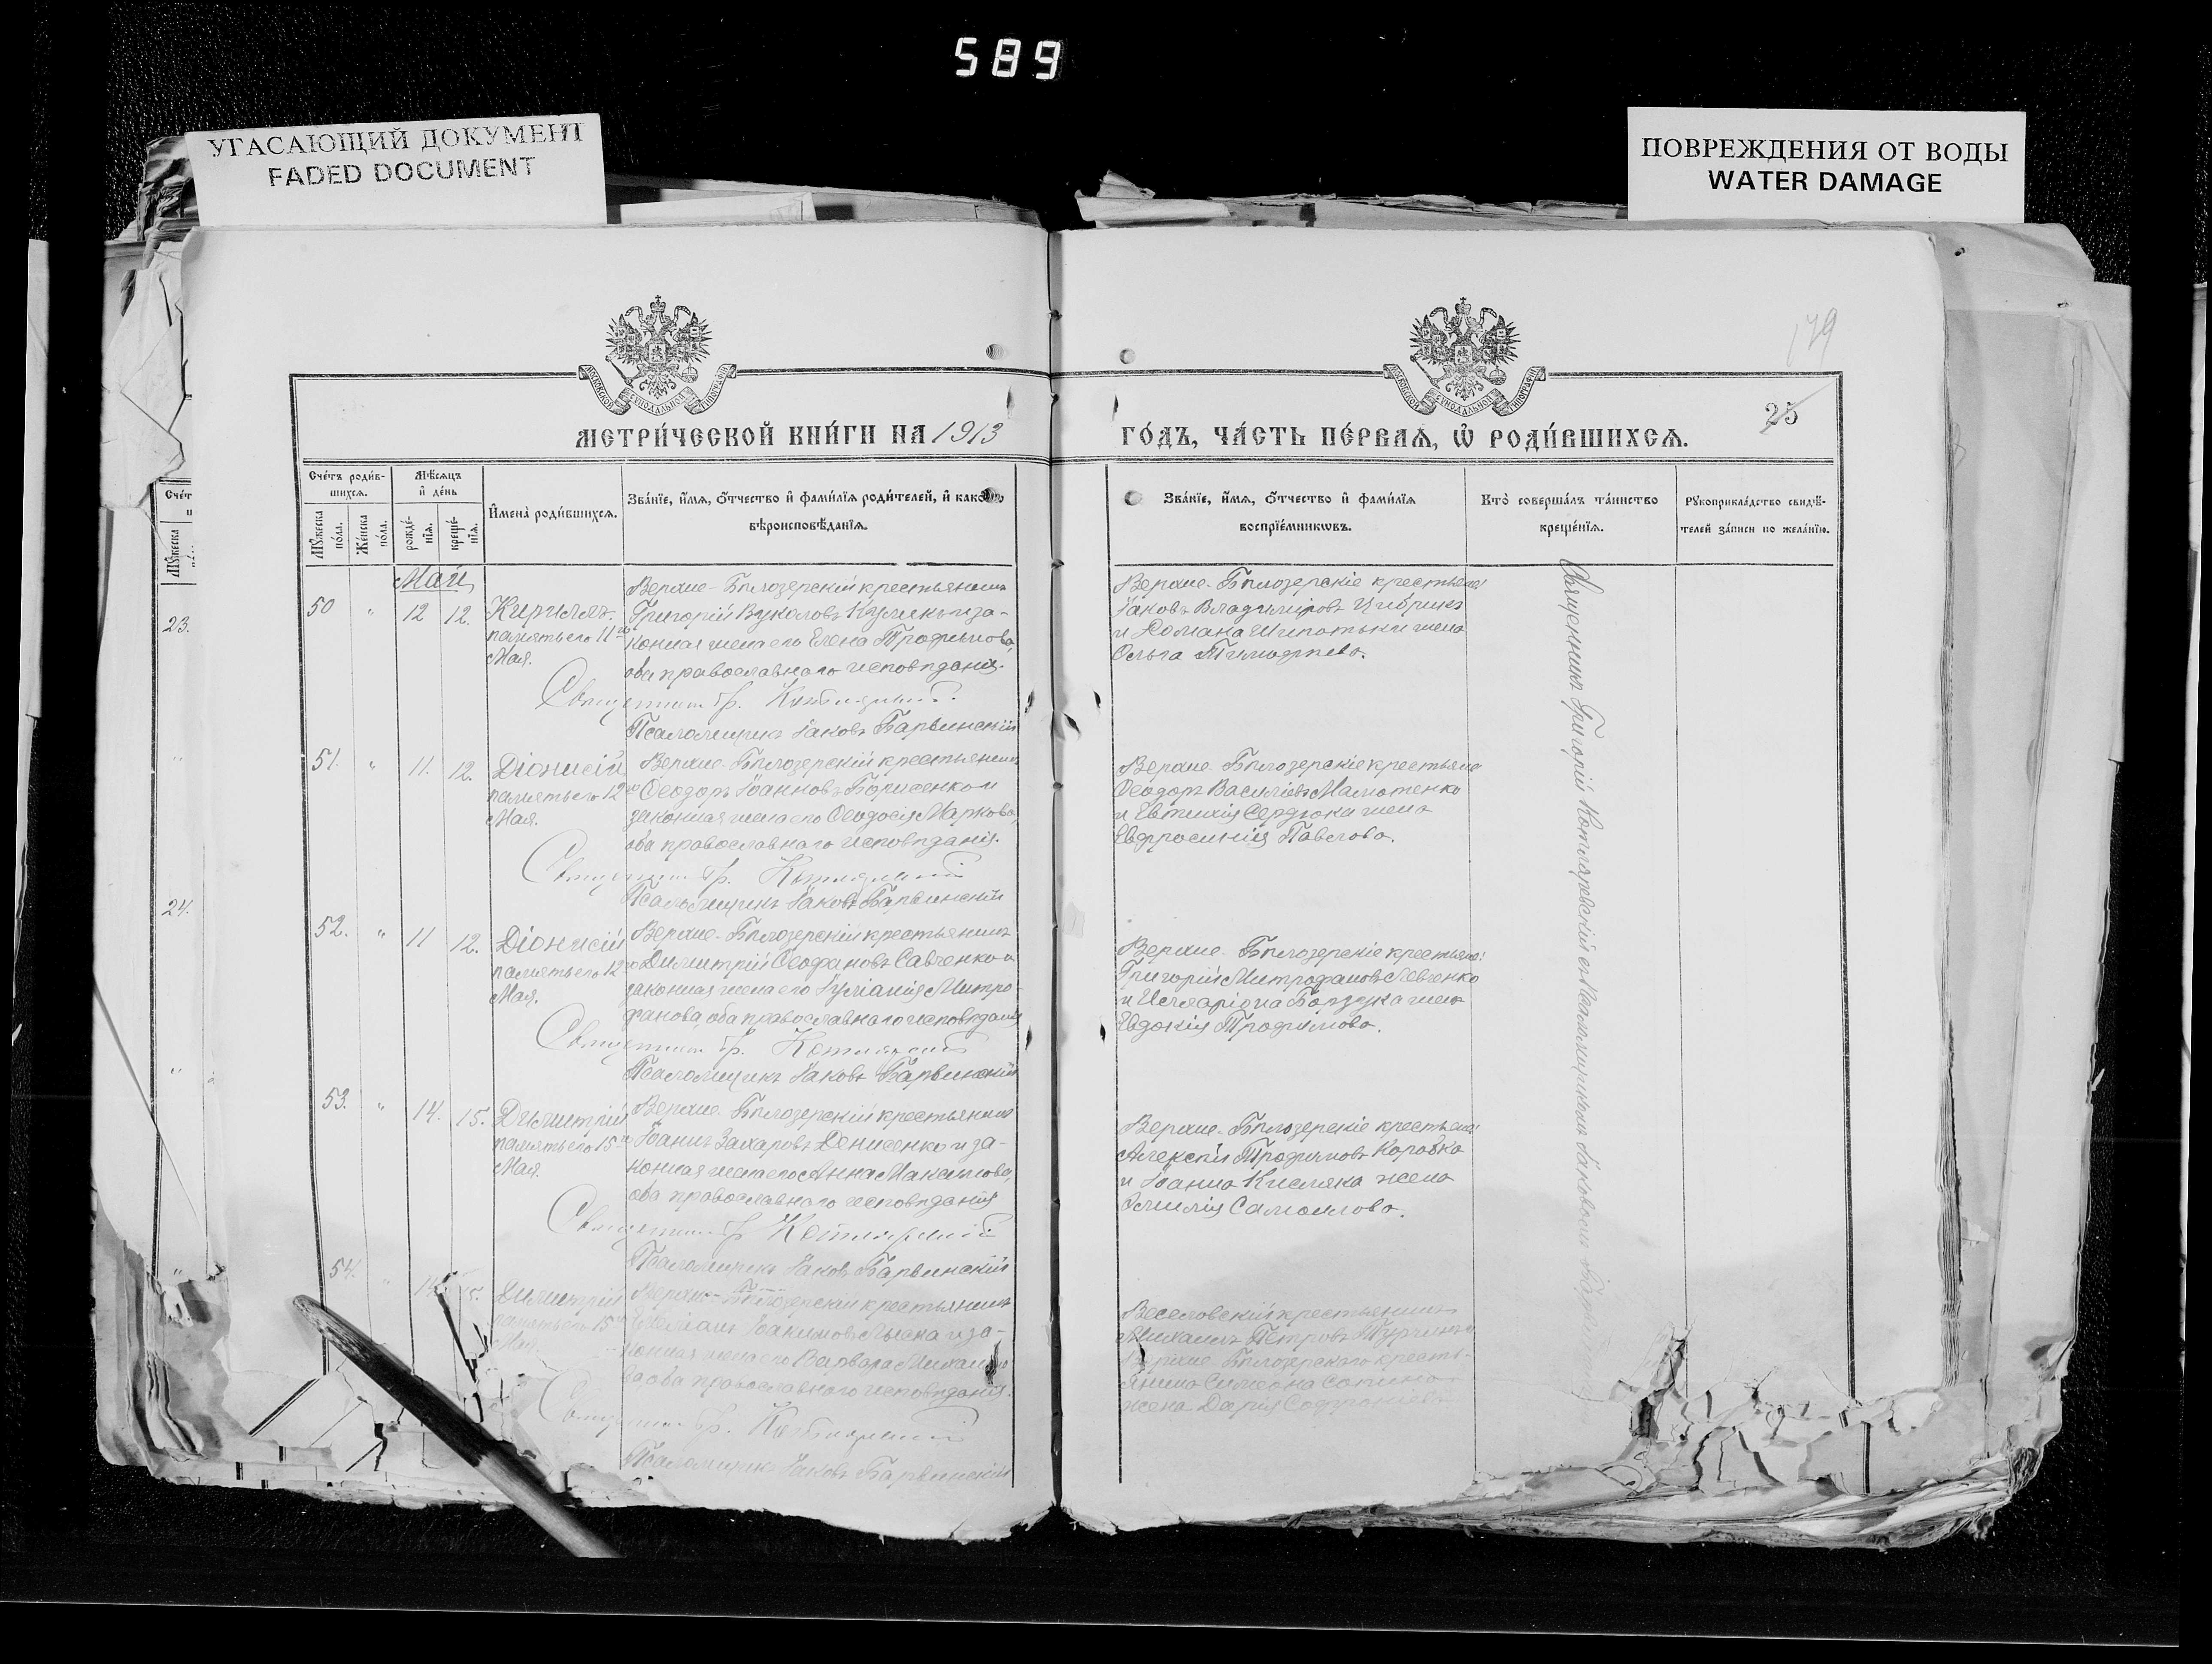 589
УГАСАЮЩИЙ ДОКУМЕНТ
FADED DOCUMENT
ПОВРЕЖДЕНИЯ ОТ ВОДЫ
WATER DAMAGE
179
25
МЕТРИ́ЧЕСКОЙ КНИ́ГИ НА 1913
ГО́ДЪ, ЧА́СТЬ ПЕ́РВАѦ, Ѽ РОДИ́ВШИХСѦ.
Сче́тъ роди́в-
шихсѧ.
Мѣ́сѧцъ
и҆ де́нь
Мꙋ́жеска по́ла.
Же́нска по́ла.
рожде́-
нїѧ.
креще́-
нїѧ.
И҆мена̀ роди́вшихсѧ.
Зва́нїе, и҆́мѧ, ѻ҆́тчество и҆ фами́лїѧ роди́телей, и҆ како́гѡ
вѣроисповѣ́данїѧ.
Зва́нїе, и҆́мѧ, ѻ҆́тчество и҆ фами́лїѧ
воспрїе́мникѡвъ.
Кто̀ соверша́лъ та́инство
креще́нїѧ.
Рꙋкоприкла́дство свидѣ́-
телей за́писи по жела́нїю.
23.
24.
Май
50 " 12 12.
Кириллъ.
память его 11го
Мая.
Верхне-Бѣлозерскій крестьянинъ
Григорій Вуколовъ и за-
конная жена его Елена Трофимова,
оба православнаго исповѣданія.
Священникъ Гр. Котляревскій
Псаломщикъ Іаковъ Барвинскій
Верхне-Бѣлозерскіе крестьяне:
Іаковъ Владиміровъ
и Романа жена
Ольга Тимофѣева.
51. " 11. 12.
Діонисій
память его 12го
Мая.
Верхне-Бѣлозерскій крестьянинъ
Ѳеодоръ Іоанновъ Борисенко и
законная жена его Ѳеодосія Маркова,
оба православнаго исповѣданія.
Священникъ Гр. Котляревскій
Псаломщикъ Іаковъ Барвинскій
Верхне-Бѣлозерскіе крестьяне
Ѳеодоръ Василіевъ Мамотенко
и Евтихія Сердюка жена
Евфросинія Павлова.
52. " 11 12.
Діонисій
память его 12го
Мая.
Верхне-Бѣлозерскій крестьянинъ
Димитрій Ѳеофановъ Савченко и
законная жена его Іуліанія Митро-
фанова, оба православнаго исповѣданія
Священникъ Гр. Котляревскій
Псаломщикъ Іаковъ Барвинскій
Верхне-Бѣлозерскіе крестьяне:
Григорій Митрофановъ Левченко
и Илларіона жена
Евдокія Трофимова.
53. " 14. 15.
Димитрій
память его 15го
Мая.
Верхне-Бѣлозерскій крестьянинъ
Іоаннъ Захаровъ Денисенко и за-
конная жена его Анна Максимова,
оба православнаго исповѣданія
Священникъ Гр. Котляревскій
Псаломщикъ Іаковъ Барвинскій
Верхне-Бѣлозерскіе крестьяне:
Алексѣй Трофимовъ Коровка
и Іоанна Кисляка жена
Эмилія Самоилова.
54. " 14 15.
Димитрій
память его 15го
Мая.
Верхне-Бѣлозерскій крестьянинъ
Іоакимовъ и за-
конная жена его Варвара Михаило-
ва оба православнаго исповѣданія.
Священникъ Гр. Котляревскій
Псаломщикъ Іаковъ Барвинскій
Веселовскій крестьянинъ
Михаилъ Петровъ
Верхне-Бѣлозерскаго кресть-
янина Симеона
жена Дарія Софроніева
Священникъ Григорій Котляревскій съ псаломщикомъ Іаковомъ